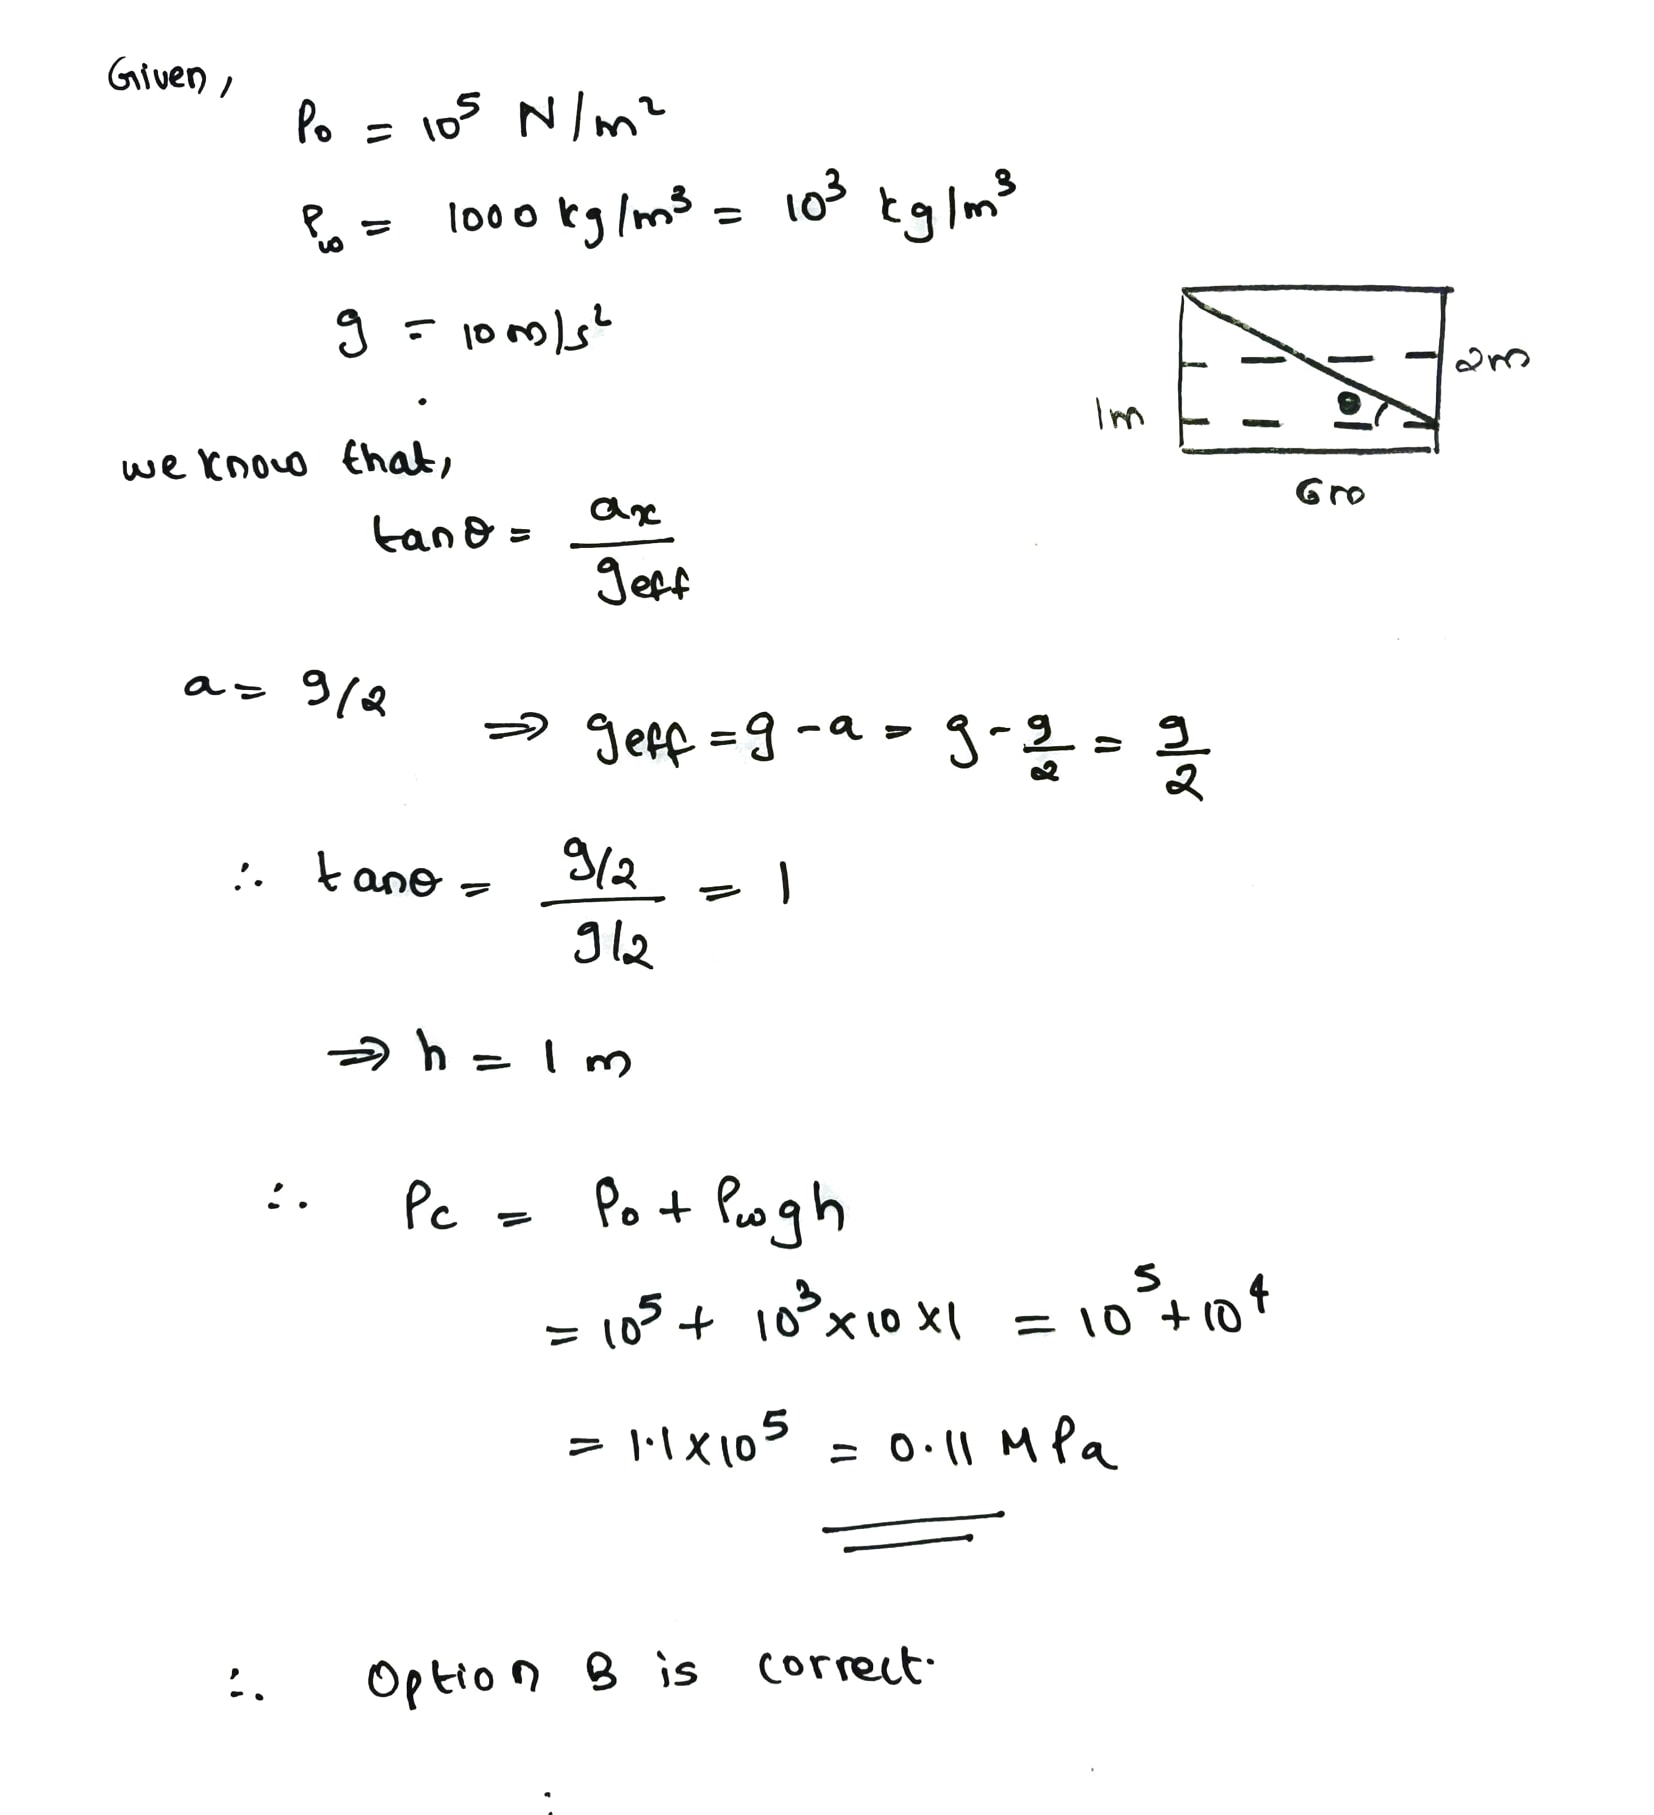 Given,
P₀ = 10⁵ N/m²
ρ_w = 1000 kg/m³ = 10³ kg/m³
g = 10 m/s²
2m
1m
θ
6m
we know that,
tanθ = aₓ / g_eff
a = g/2 ⇒ g_eff = g - a = g - g/2 = g/2
∴ tanθ = (g/2) / (g/2) = 1
⇒ h = 1 m
∴ P_C = P₀ + ρ_w g h
= 10⁵ + 10³ × 10 × 1 = 10⁵ + 10⁴
= 1.1 × 10⁵ = 0.11 MPa
∴ Option B is correct.